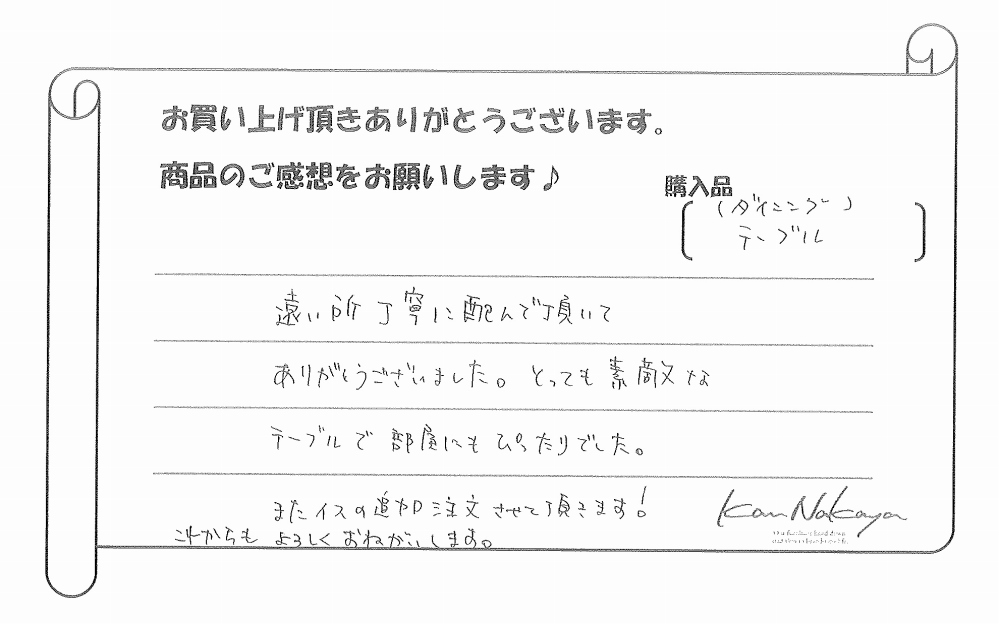 お買い上げ頂きありがとうございます。
商品のご感想をお願いします♪
購入品
(ダイニング)
テーブル
遠い所丁寧に配んで頂いて
ありがとうございました。とっても素敵な
テーブルで部屋にもぴったりでした。
またイスの追加注文させて頂きます!
これからもよろしくおねがいします。
Kan Nakaya